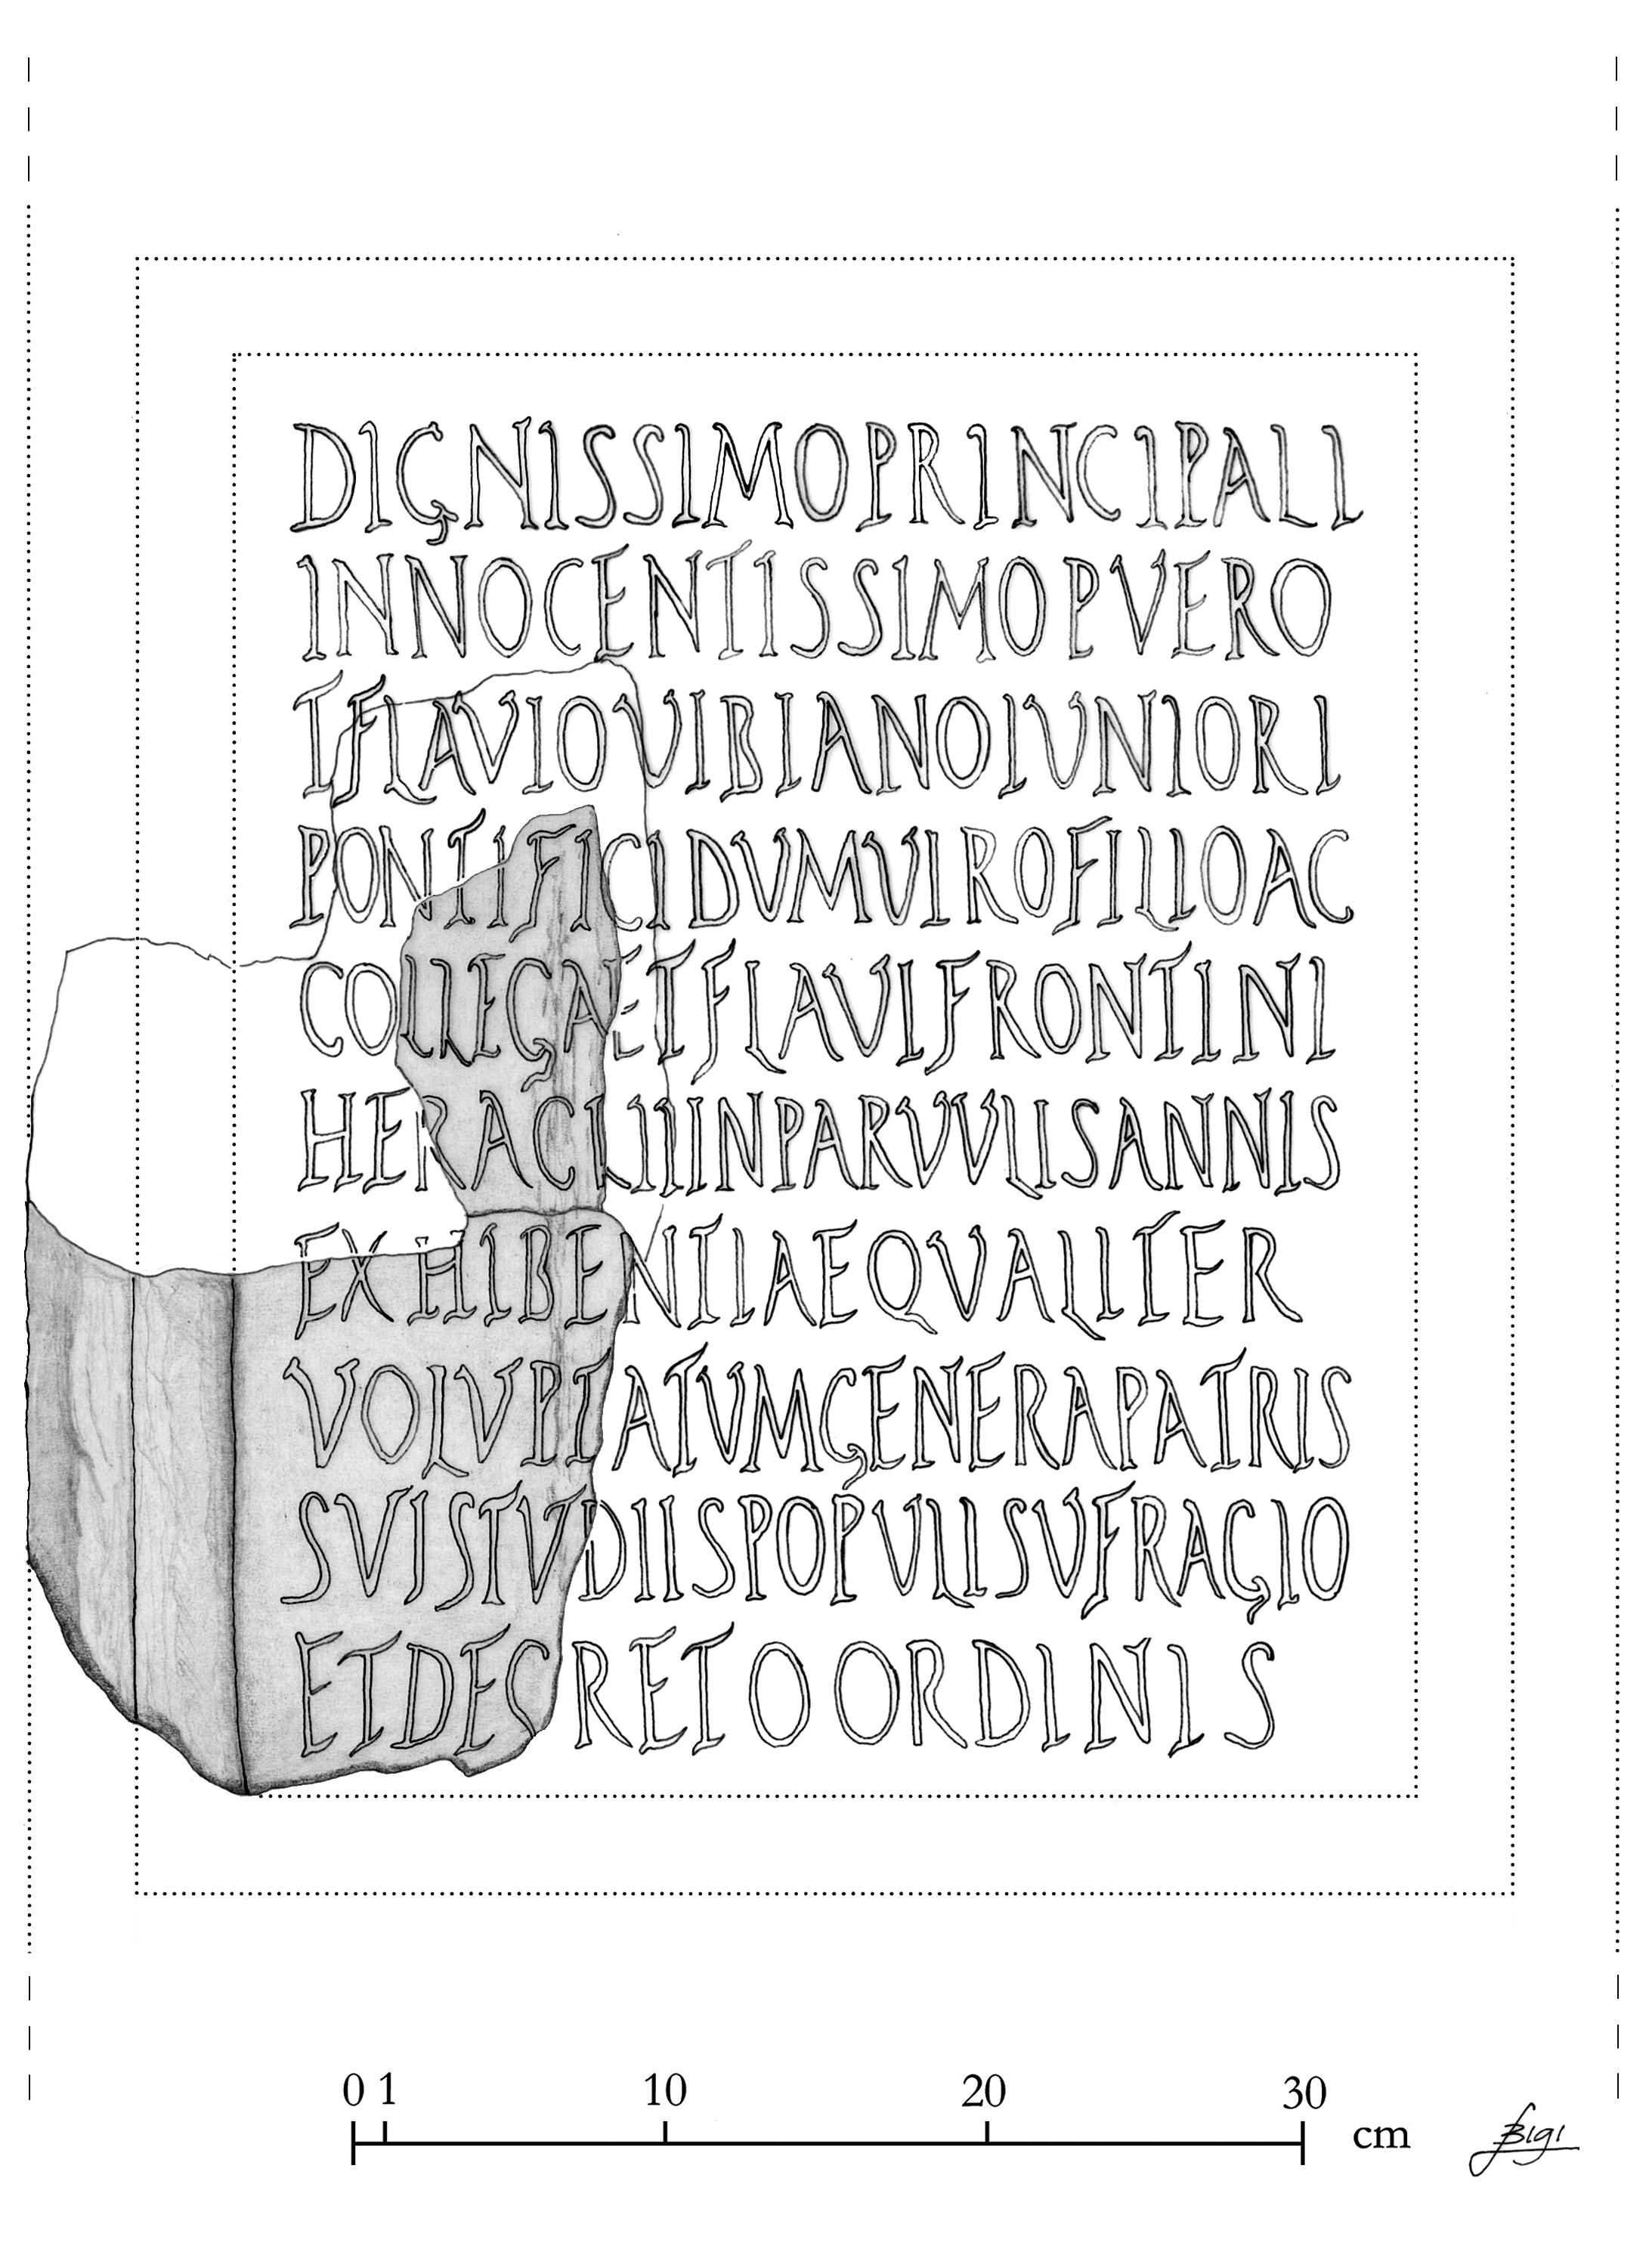 DIGNISSIMOPRINCIPALI
INNOCENTISSIMOPVERO
TFLAVIOVIBIANOIVNIORI
PONTIFICIDVMVIROFILIOAC
COLLEGAETFLAVIFRONTINI
HERACLIIINPARVVLISANNIS
EXHIBENTIAEQVALITER
VOLVPTATVMGENERAPATRIS
SVISTVDIISPOPVLISVFRAGIO
ETDECRETOORDINIS
0 1 10 20 30 cm
Bigi